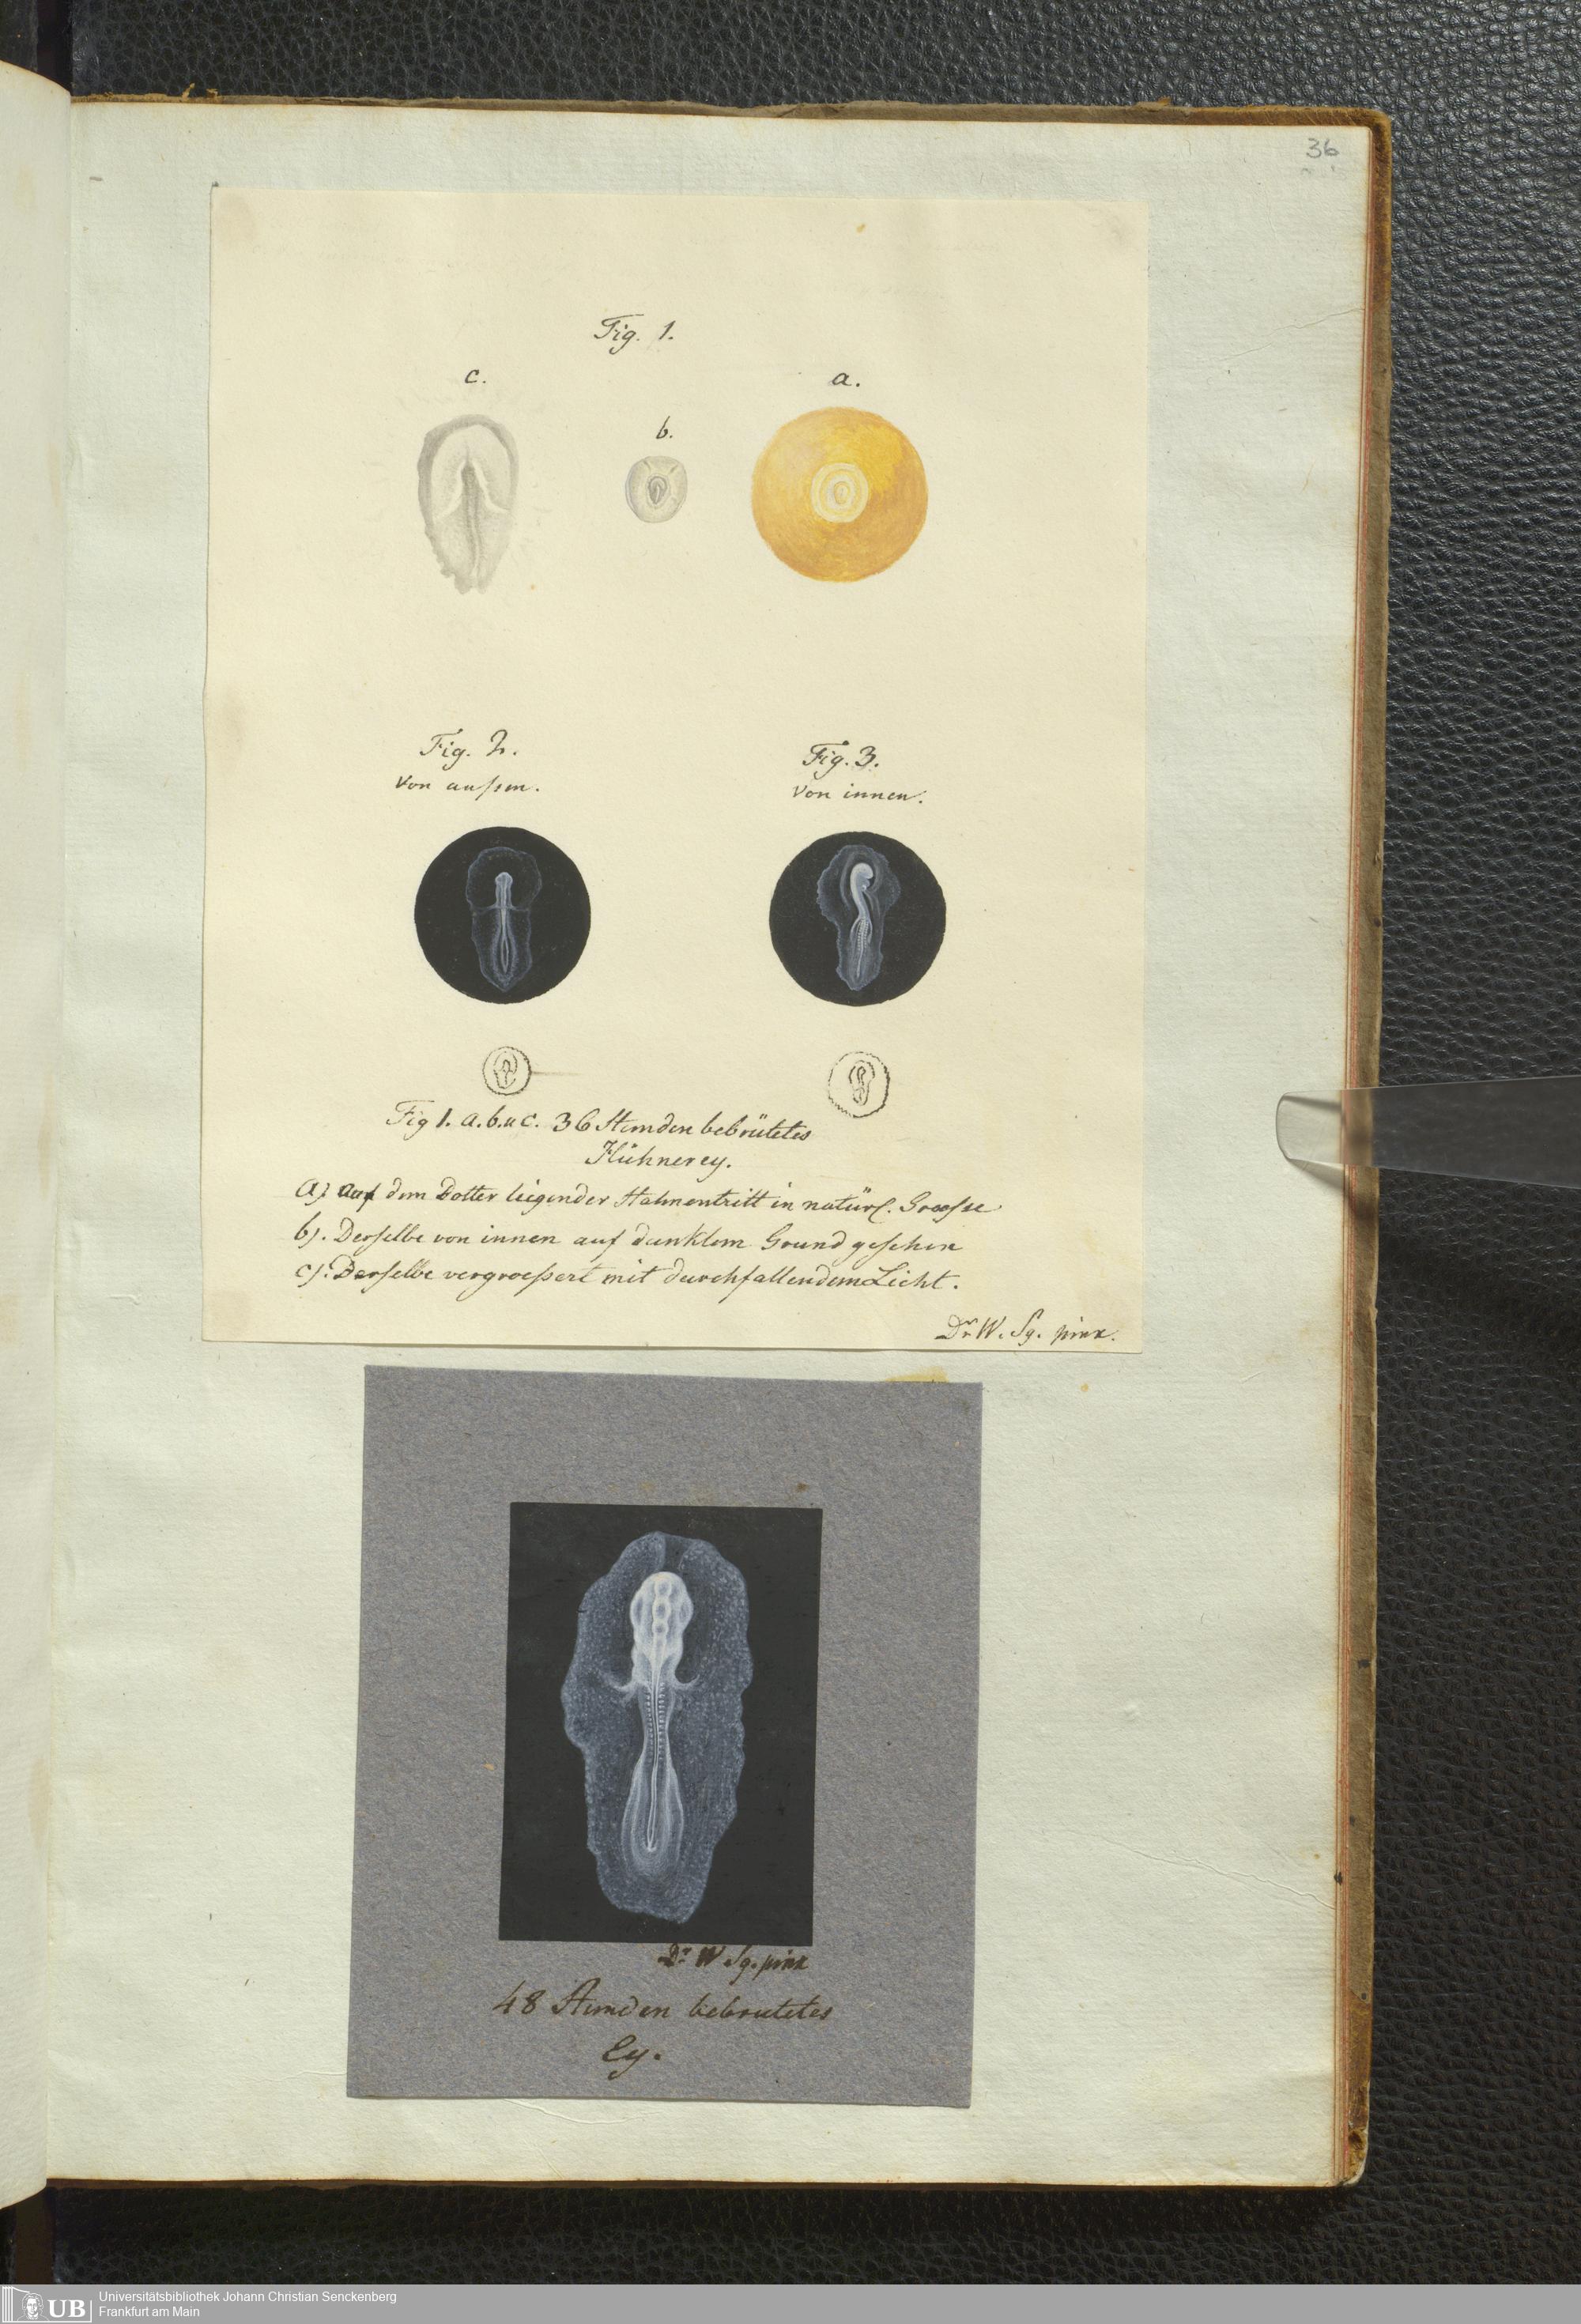 36
Fig. 1.
c.
a.
b.
Fig. 2.
Von außen.
Fig. 3.
Von innen.
Fig 1. a. b. u c. 36 Stunden bebrütetes
Hühnerey.
a) auf dem Dotter liegender Hahnentritt in natürl. Groesse
b). Derselbe von innen auf dunklem Grund gesehen
c). Derselbe vergroeßert mit durchfallendem Licht.
Dr. W. Sg. pinx.
Dr. W. Sg. pinx
48 Stunden bebrütetes
Ey.
UB
Universitätsbibliothek Johann Christian Senckenberg
Frankfurt am Main